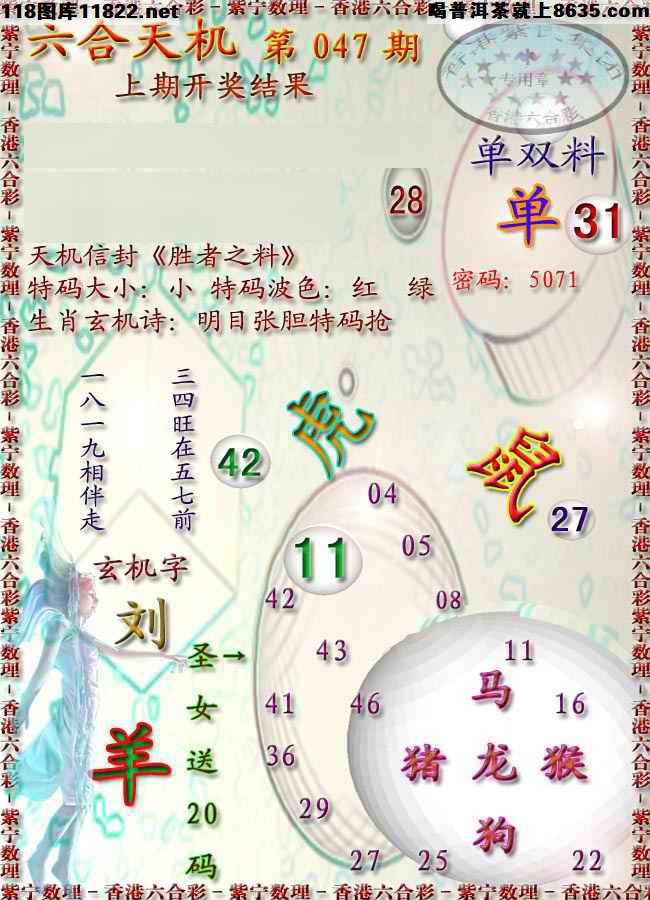 118图库11822.net
喝普洱茶就上8635.com
紫宁数理－香港六合彩－紫宁数理－香港六合彩－紫宁数理－香港六合彩
六合天机 第 047 期
上期开奖结果
专用章
香港六合彩
单双料
单 31
28
天机信封《胜者之料》
特码大小：小 特码波色：红 绿
密码：5071
生肖玄机诗：明目张胆特码抢
三四旺在五七前
一八一九相伴走
42
虎
鼠
27
玄机字
刘
羊
圣→
女
送
20
码
04
11
05
42
08
43
11
41
46
16
36
29
27
25
22
马
猪 龙 猴
狗
紫宁数理－香港六合彩－紫宁数理－香港六合彩－紫宁数理－香港六合彩－紫宁数理
紫宁数理－香港六合彩－紫宁数理－香港六合彩－紫宁数理－香港六合彩－紫宁数理
紫宁数理－香港六合彩－紫宁数理－香港六合彩－紫宁数理－香港六合彩